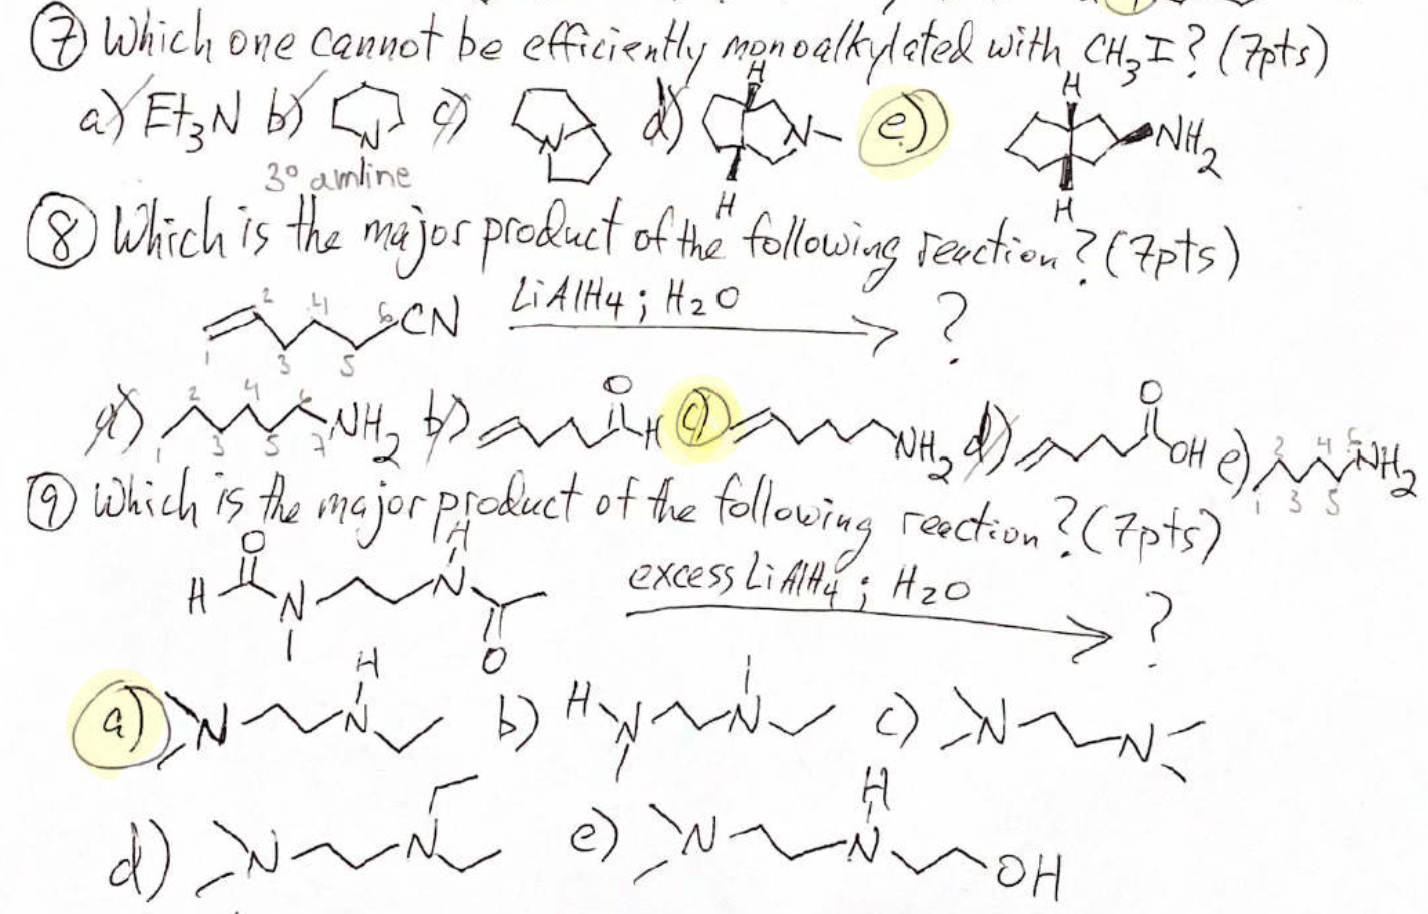 ⑦ Which one cannot be efficiently monoalkylated with CH3I? (7pts)
a) Et3N b) N c) N d) H N H e) H NH2 H
3° amline
⑧ Which is the major product of the following reaction? (7pts)
1 2 3 4 5 6 CN LiAlH4; H2O ?
a) 1 2 3 4 5 6 7 NH2 b) O H c) NH2 d) O OH e) 1 2 3 4 5 6 NH2
⑨ Which is the major product of the following reaction? (7pts)
H O N H N O excess LiAlH4; H2O ?
a) N H N b) H N N c) N N
d) N N e) N H N OH